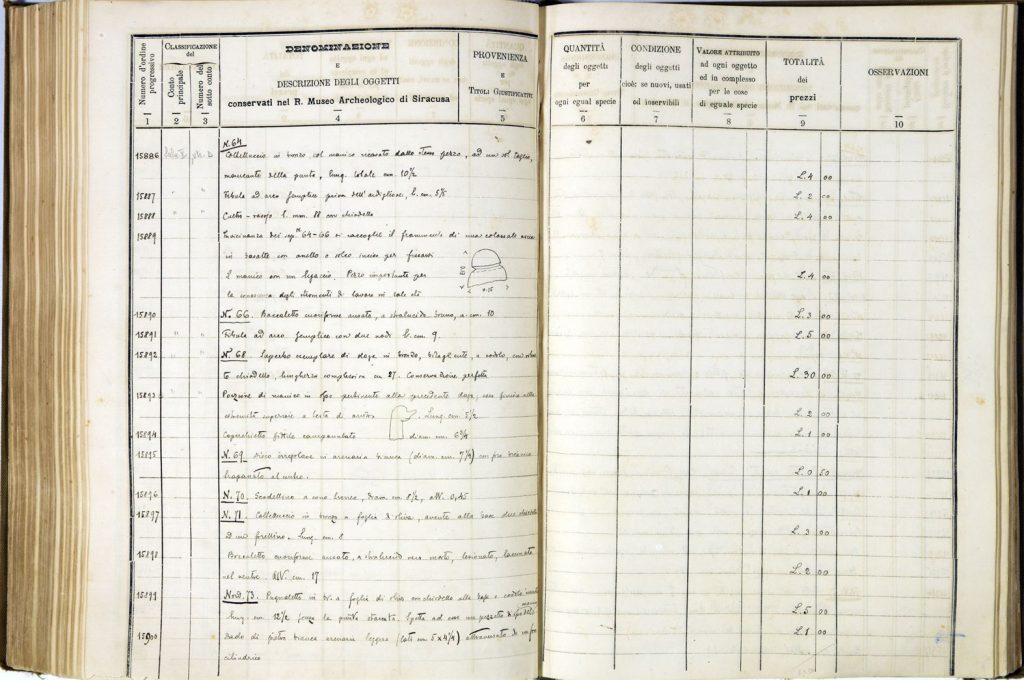 Numero d'ordine progressivo
CLASSIFICAZIONE del
Conto principale
Numero del sotto conto
DENOMINAZIONE
E
DESCRIZIONE DEGLI OGGETTI
conservati nel R. Museo Archeologico di Siracusa
PROVENIENZA
E
TITOLI GIUSTIFICATIVI
1 2 3 4 5
N. 64
15886 Coltelluccio in bronzo col manico ricavato dallo stesso pezzo, ad un sol taglio,
mancante della punta, lung. totale cm. 10½
15887 Fibula ad arco semplice priva dell'ardiglione, l. cm. 5
15888 " " l. mm. 88 con chiodello
15889 64-66 si raccoglie il frammento di una colossale
in basalte con anello o solco inciso per fissarvi
il manico con un legaccio. Pezzo importante per
la conoscenza degli strumenti di lavoro in tale età
0.15
15890 N. 66. Boccaletto ansato, a bruno, a. cm. 10
15891 " " Fibula ad arco semplice con due nodi l. cm. 9.
15892 " " N. 68 Superbo esemplare di daga in bronzo, a
chiodello, lunghezza complessiva cm 27. Conservazione perfetta
15893 Porzione di manico in osso pertinente alla precedente daga,
estremità superiore a testa di . Lung. cm. 5½
15894 Coperchietto fittile campanulato diam. cm. 6¾
15895 N. 69 Disco irregolare in arenaria bianca (diam. cm. 7¼) con
trapanato al centro.
15896 N. 70. Scodellino a cono tronco, diam. cm. 8½, alt. 0,45
15897 N. 71. Coltelluccio in bronzo a foglia d'oliva, avente alla base due
. Lung. cm. 8
15898 Boccaletto ansato, a , lesionato,
nel ventre. Alt. cm. 17
15899 N. 73. Pugnaletto in a foglia di olivo con chiodello alla base e
lung. cm. 12½ senza la punta . Spetta ad esso un pezzetto di
15900 Dado di pietra bianca arenaria leggera (lati cm 5 x 4¼) attraversato da
cilindrico
QUANTITÀ
degli oggetti
per
ogni egual specie
CONDIZIONE
degli oggetti
cioè: se nuovi, usati
od inservibili
VALORE ATTRIBUITO
ad ogni oggetto
od in complesso
per le cose
di eguale specie
TOTALITÀ
dei
prezzi
OSSERVAZIONI
6 7 8 9 10
L. 4 00
L. 2 00
L. 4 00
L. 4 00
L. 3 00
L. 5 00
L. 30 00
L. 2 00
L. 1 00
L. 0 50
L. 1 00
L. 3 00
L. 2 00
L. 5 00
L. 1 00